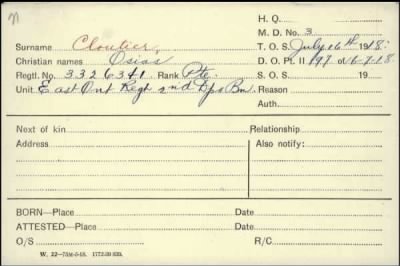 n
H. Q.
M. D. No. 3
Surname Cloutier, T. O. S. July 16th 1918.
Christian names Osias D. O. Pt. II 197 of 16-7-18.
Regtl. No. 3326341 Rank Pte. S. O. S. 19
Unit East Ont Regt 2nd Dps Bn. Reason
Auth.
Next of kin Relationship
Address Also notify:
BORN—Place Date
ATTESTED—Place Date
O/S R/C
W. 22—